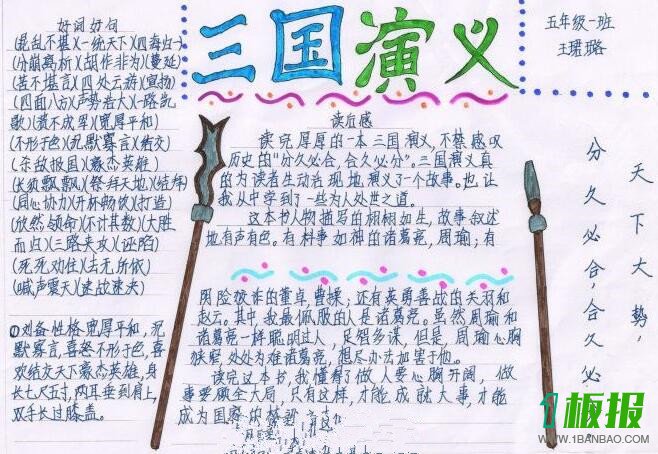 三国演义
五年级一班
王珺璐
好词好句
(混乱不堪)(一统天下)(四海归一)
(分崩离析)(胡作非为)(蔓延)
(苦不堪言)(四处云游)(宣扬)
(四面八方)(声势浩大)(一路凯
歌)(溃不成军)(宽厚平和)
(不形于色)(沉默寡言)(结交)
(杀敌报国)(豪杰英雄)
(长须飘飘)(祭拜天地)(结拜)
(同心协力)(开怀畅饮)(打造)
(欣然领命)(不计其数)(大胜
而归)(三路夹攻)(诬陷)
(死死劝住)(去无所依)
(喊声震天)(速战速决)
①刘备性格宽厚平和，沉
默寡言，喜怒不形于色，喜
欢结交天下豪杰英雄，身
长七尺五寸，两耳垂到肩上，
双手长过膝盖。
读后感
读完厚厚的一本三国演义，不禁感叹
历史的“分久必合，合久必分”。三国演义真
的为读者生动活现地演义了一个故事。也让
我从中学到了一些为人处世之道。
这本书人物描写的栩栩如生，故事叙述
地有声有色。有料事如神的诸葛亮，周瑜；有
阴险狡诈的董卓，曹操；还有英勇善战的关羽和
赵云。其中我最佩服的人是诸葛亮。虽然周瑜和
诸葛亮一样聪明过人，足智多谋，但是，周瑜心胸
狭窄，处处为难诸葛亮，想尽办法加害于他。
读完这本书，我懂得了做人要心胸开阔，做
事要顾全大局，只有这样，才能成就大事，才能
成为国家的
天下大势，
分久必合，合久必
1板报
WWW.1BANBAO.COM